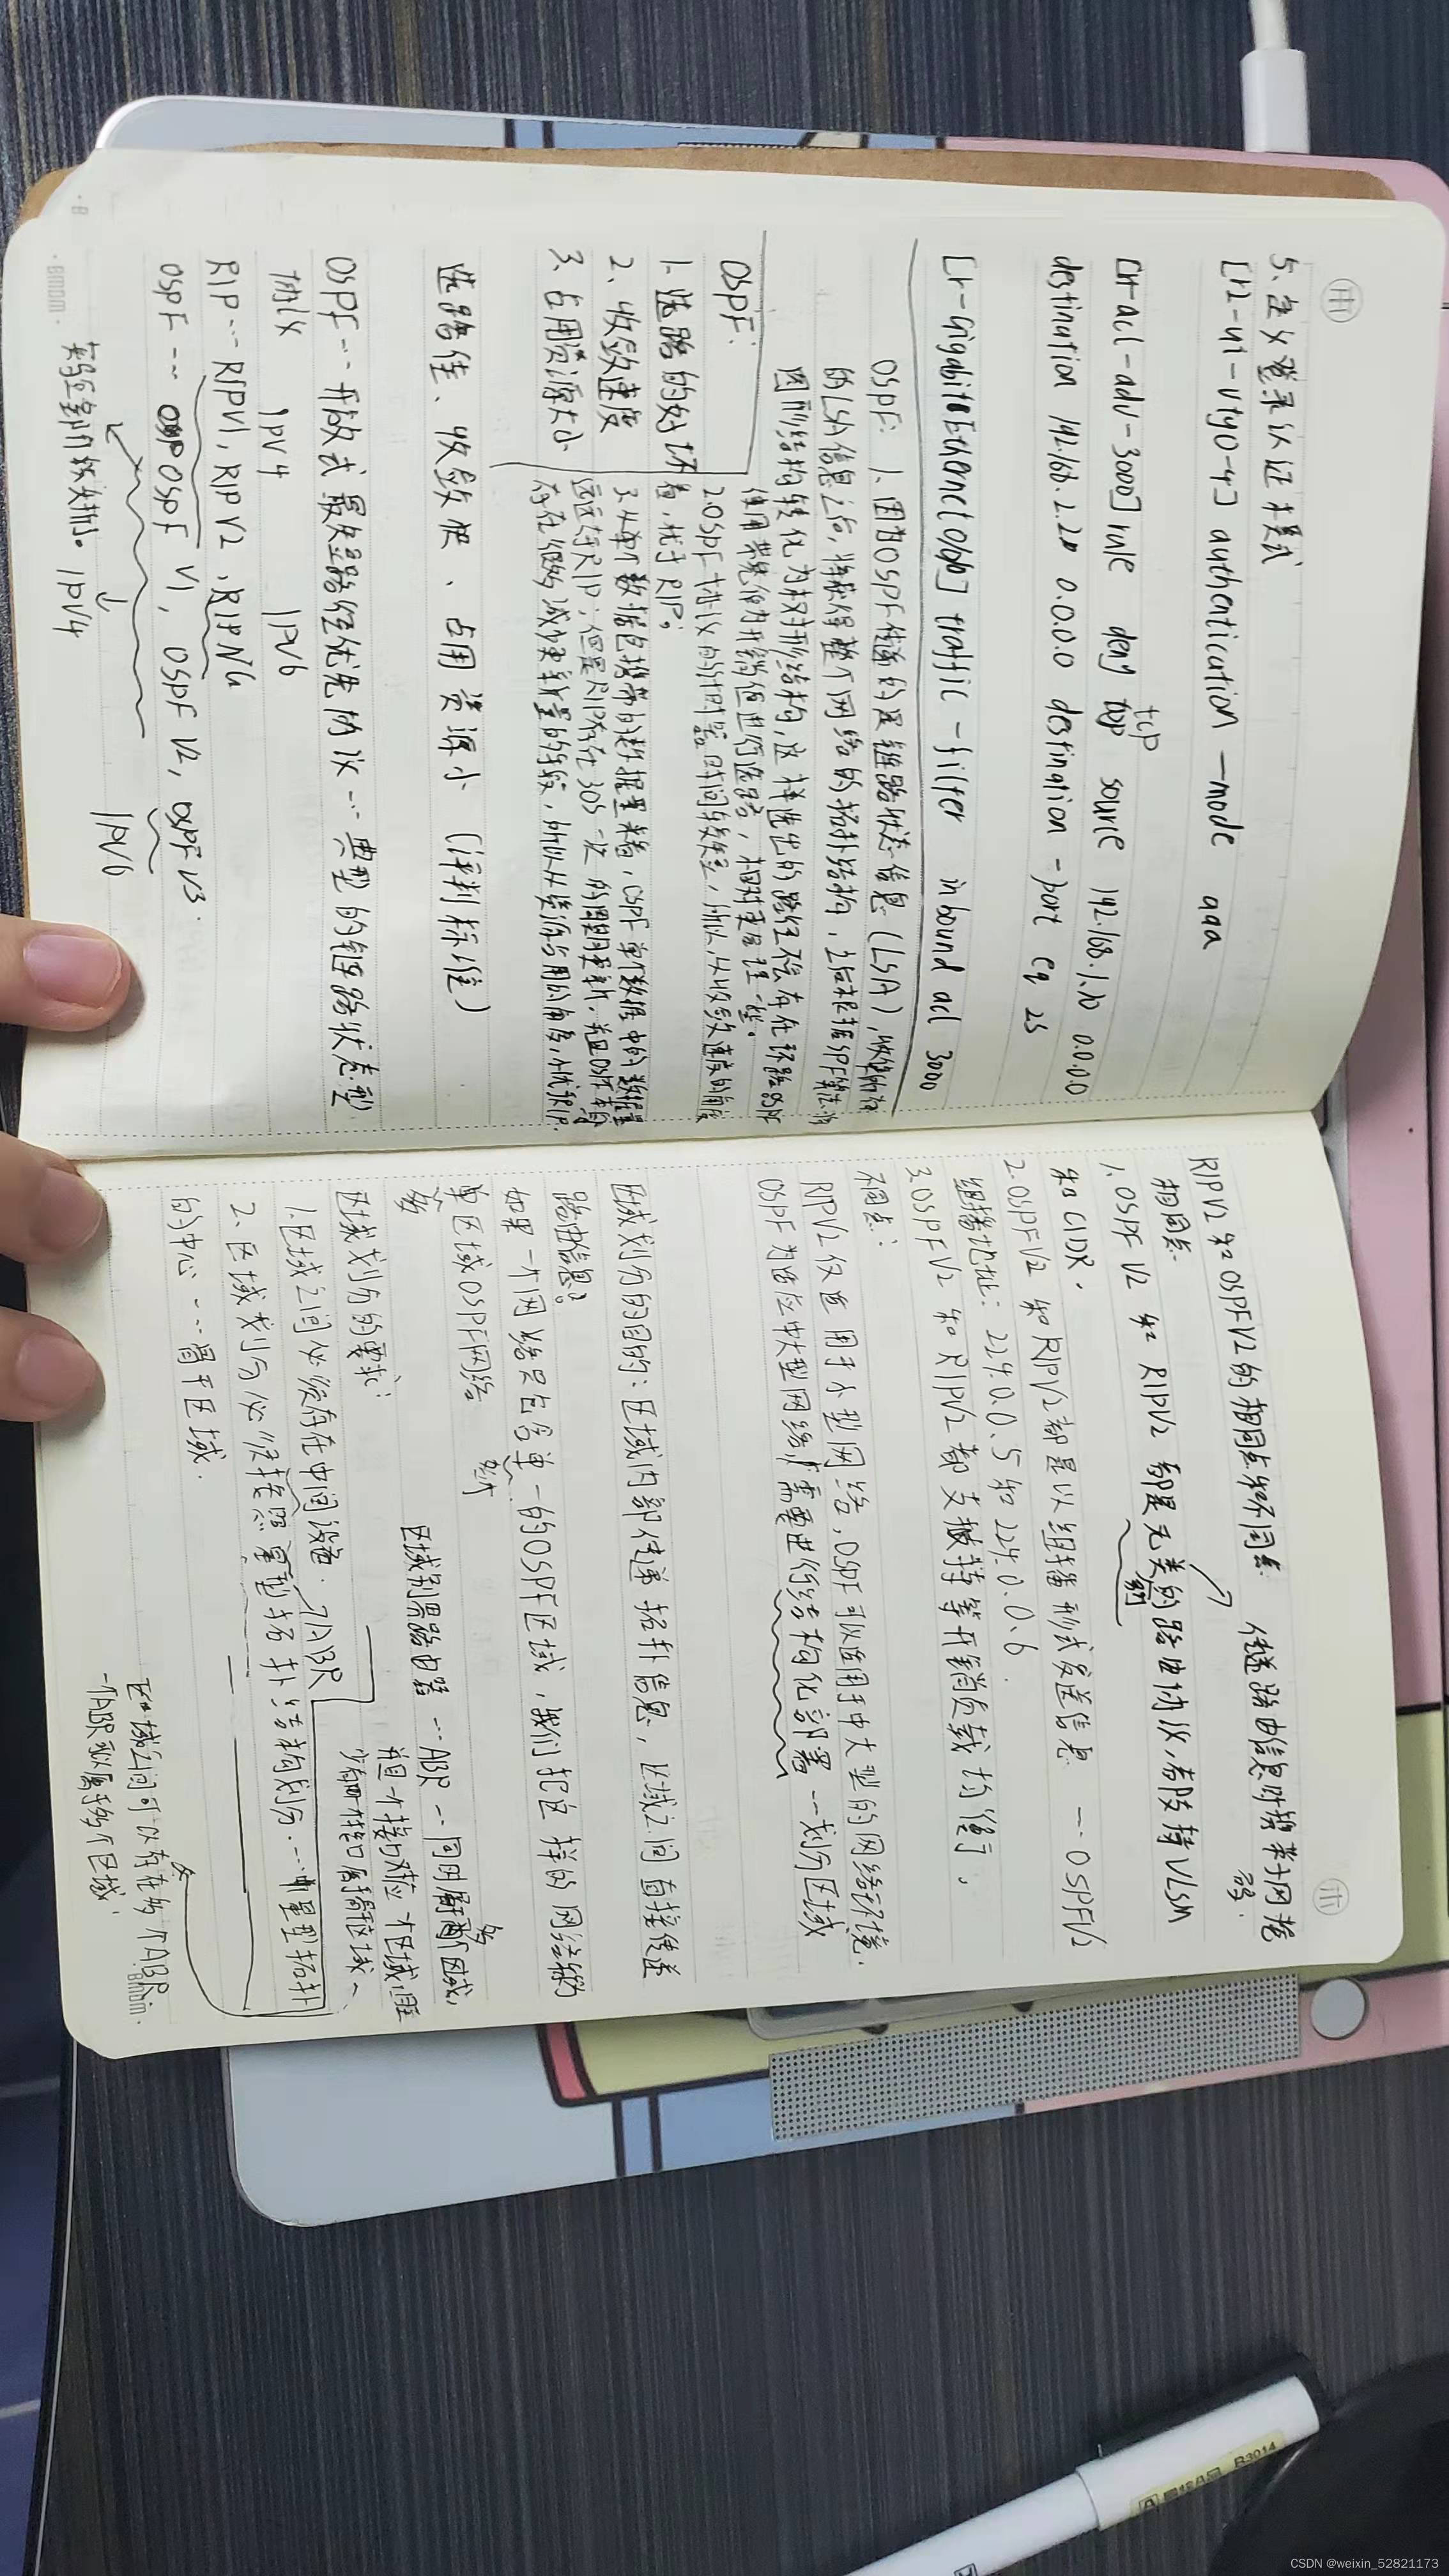 5、定义登录认证模式
[r2-ui-vty0-4] authentication-mode aaa
[r-acl-adv-3000] rule deny tcp source 192.168.1.10 0.0.0.0
destination 192.168.2.20 0.0.0.0 destination-port eq 23
[r-GigabitEthernet0/0/0] traffic-filter inbound acl 3000
OSPF: 1. 因为OSPF传递的是链路状态信息(LSA),收集所有
的LSA信息之后,将获得整个网络的拓扑结构,之后根据SPF算法,将
图形结构转化为树形结构,这样选出的路径不会存在环路,OSPF
使用带宽作为开销值进行选路,相对更合理一些。
2.OSPF协议的计时器时间较短,所以,从收敛速度的角度
看,优于RIP;
3.从单个数据包携带的数据量来看,OSPF单个数据中的数据量
远远大于RIP;但是RIP存在30S一次的周期更新,并且OSPF本身
存在很多减少更新量的手段,所以从资源占用的角度,优于RIP.
OSPF:
1. 选路的好坏
2、收敛速度
3、占用资源大小
选路佳、收敛快、占用资源小(评判标准)
OSPF… 开放式最短路径优先协议… 典型的链路状态型
协议
IPV4 IPV6
RIP… RIPV1, RIPV2, RIPNG
OSPF… OSPF V1, OSPF V2, OSPF V3.
实验室阶段失排。 IPV4 IPV6
RIPV2和OSPFV2的相同点和不同点 传递路由信息时携带网络
掩码.
相同点
1. OSPF V2 和 RIPV2 都是无类别的路由协议,都支持VLSM
和CIDR.
2.OSPFV2和RIPV2都是以组播形式发送信息 … OSPFV2
组播地址: 224.0.0.5 和 224.0.0.6.
3.OSPFV2 和 RIPV2 都支持等开销负载均衡.
不同点:
RIPV2仅适用于小型网络,OSPF可以适用于中大型的网络环境.
OSPF为适应中大型网络,需要进行结构化部署 … 划分区域
区域划分的目的:区域内部传递拓扑信息,区域之间直接传递
路由信息。
如果一个网络只包含单一的OSPF区域,我们把这样的网络称为
单区域OSPF网络
多 多个
区域划分的要求: 区域边界路由器 … ABR … 同时属于多个区域,
并且一个接口对应一个区域,至
少有一个接口属于骨干区域
1.区域之间必须存在中间设备. ABR
2、区域划分必须按照星型拓扑结构划分… 星型拓扑
的中心 … 骨干区域.
区域之间可以存在多个ABR.
一个ABR可以属于多个区域.
Bmbm
R3014
CSDN @weixin_52821173